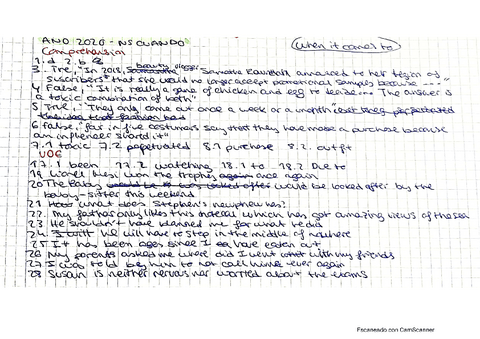 AÑO 2020 - NS CUANDO
when it comes to
Comprehension
1. d 2. b
3. True, "In 2018, beauty vlogger Samantha Ravndahl announced to her legion of
suscribers" that she would no longer accept promotional samples because ---"
4. False, "It is really a game of chicken and egg to decide ... The answer is
a toxic combination of both"
5. True, "They only come out once a week or a month"
6. False, "far in five costumers say that they have made a purchase because
an influencer shared it"
7.1 toxic 7.2 perpetuated 8.1 purchase 8.2 outfit
UOE
17.1 been 17.2 watching 18.1 to 18.2 Due to
19. Lionel Messi won the trophy again once again
20 The Baby would be looked after by the
baby-sitter this weekend
21 what does Stephen's new phew has?
22. My father only likes this hotel which has got amazing views of the sea
23 He shouldn't have blamed me for what he did
24. he will have to step in the middle of nowhere
25 It has been ages since I have eaten out
26 My parents asked me where did I went with my friends
27 I was told by him to not call him ever again
28 Susan is neither nervous nor worried about the exams
Escaneado con CamScanner